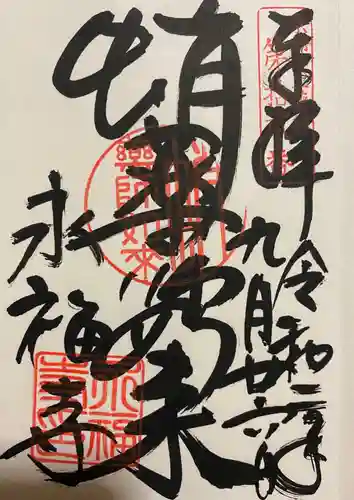 奉拝
令和二年
九月廿六日
蛸薬師如来
永福寺
藥師如来